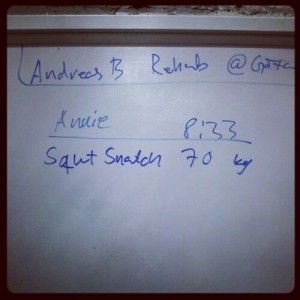 Andreas B Rehab @
Annie 8:33
Squt Snatch 70 kg